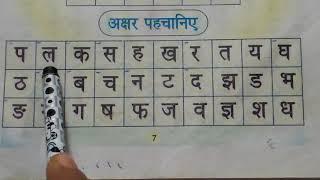 अक्षर पहचानिए
प ल क स ह ख र त य घ
ठ ब च न ट द झ ड भ
ङ ग ष फ ज व ज्ञ श ध
7